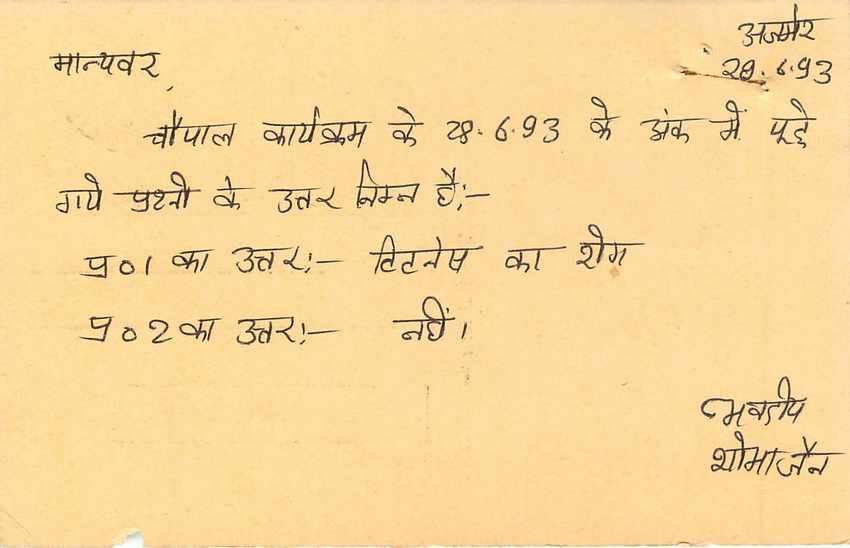 अजमेर
28.6.93
मान्यवर,
चौपाल कार्यक्रम के 28.6.93 के अंक में पूछे
गये प्रश्नो के उत्तर निम्न है:-
प्र०1 का उत्तर:- टिटनेष का रोग
प्र०2 का उत्तर:- नहीं।
भवदीय
शोभा जैन